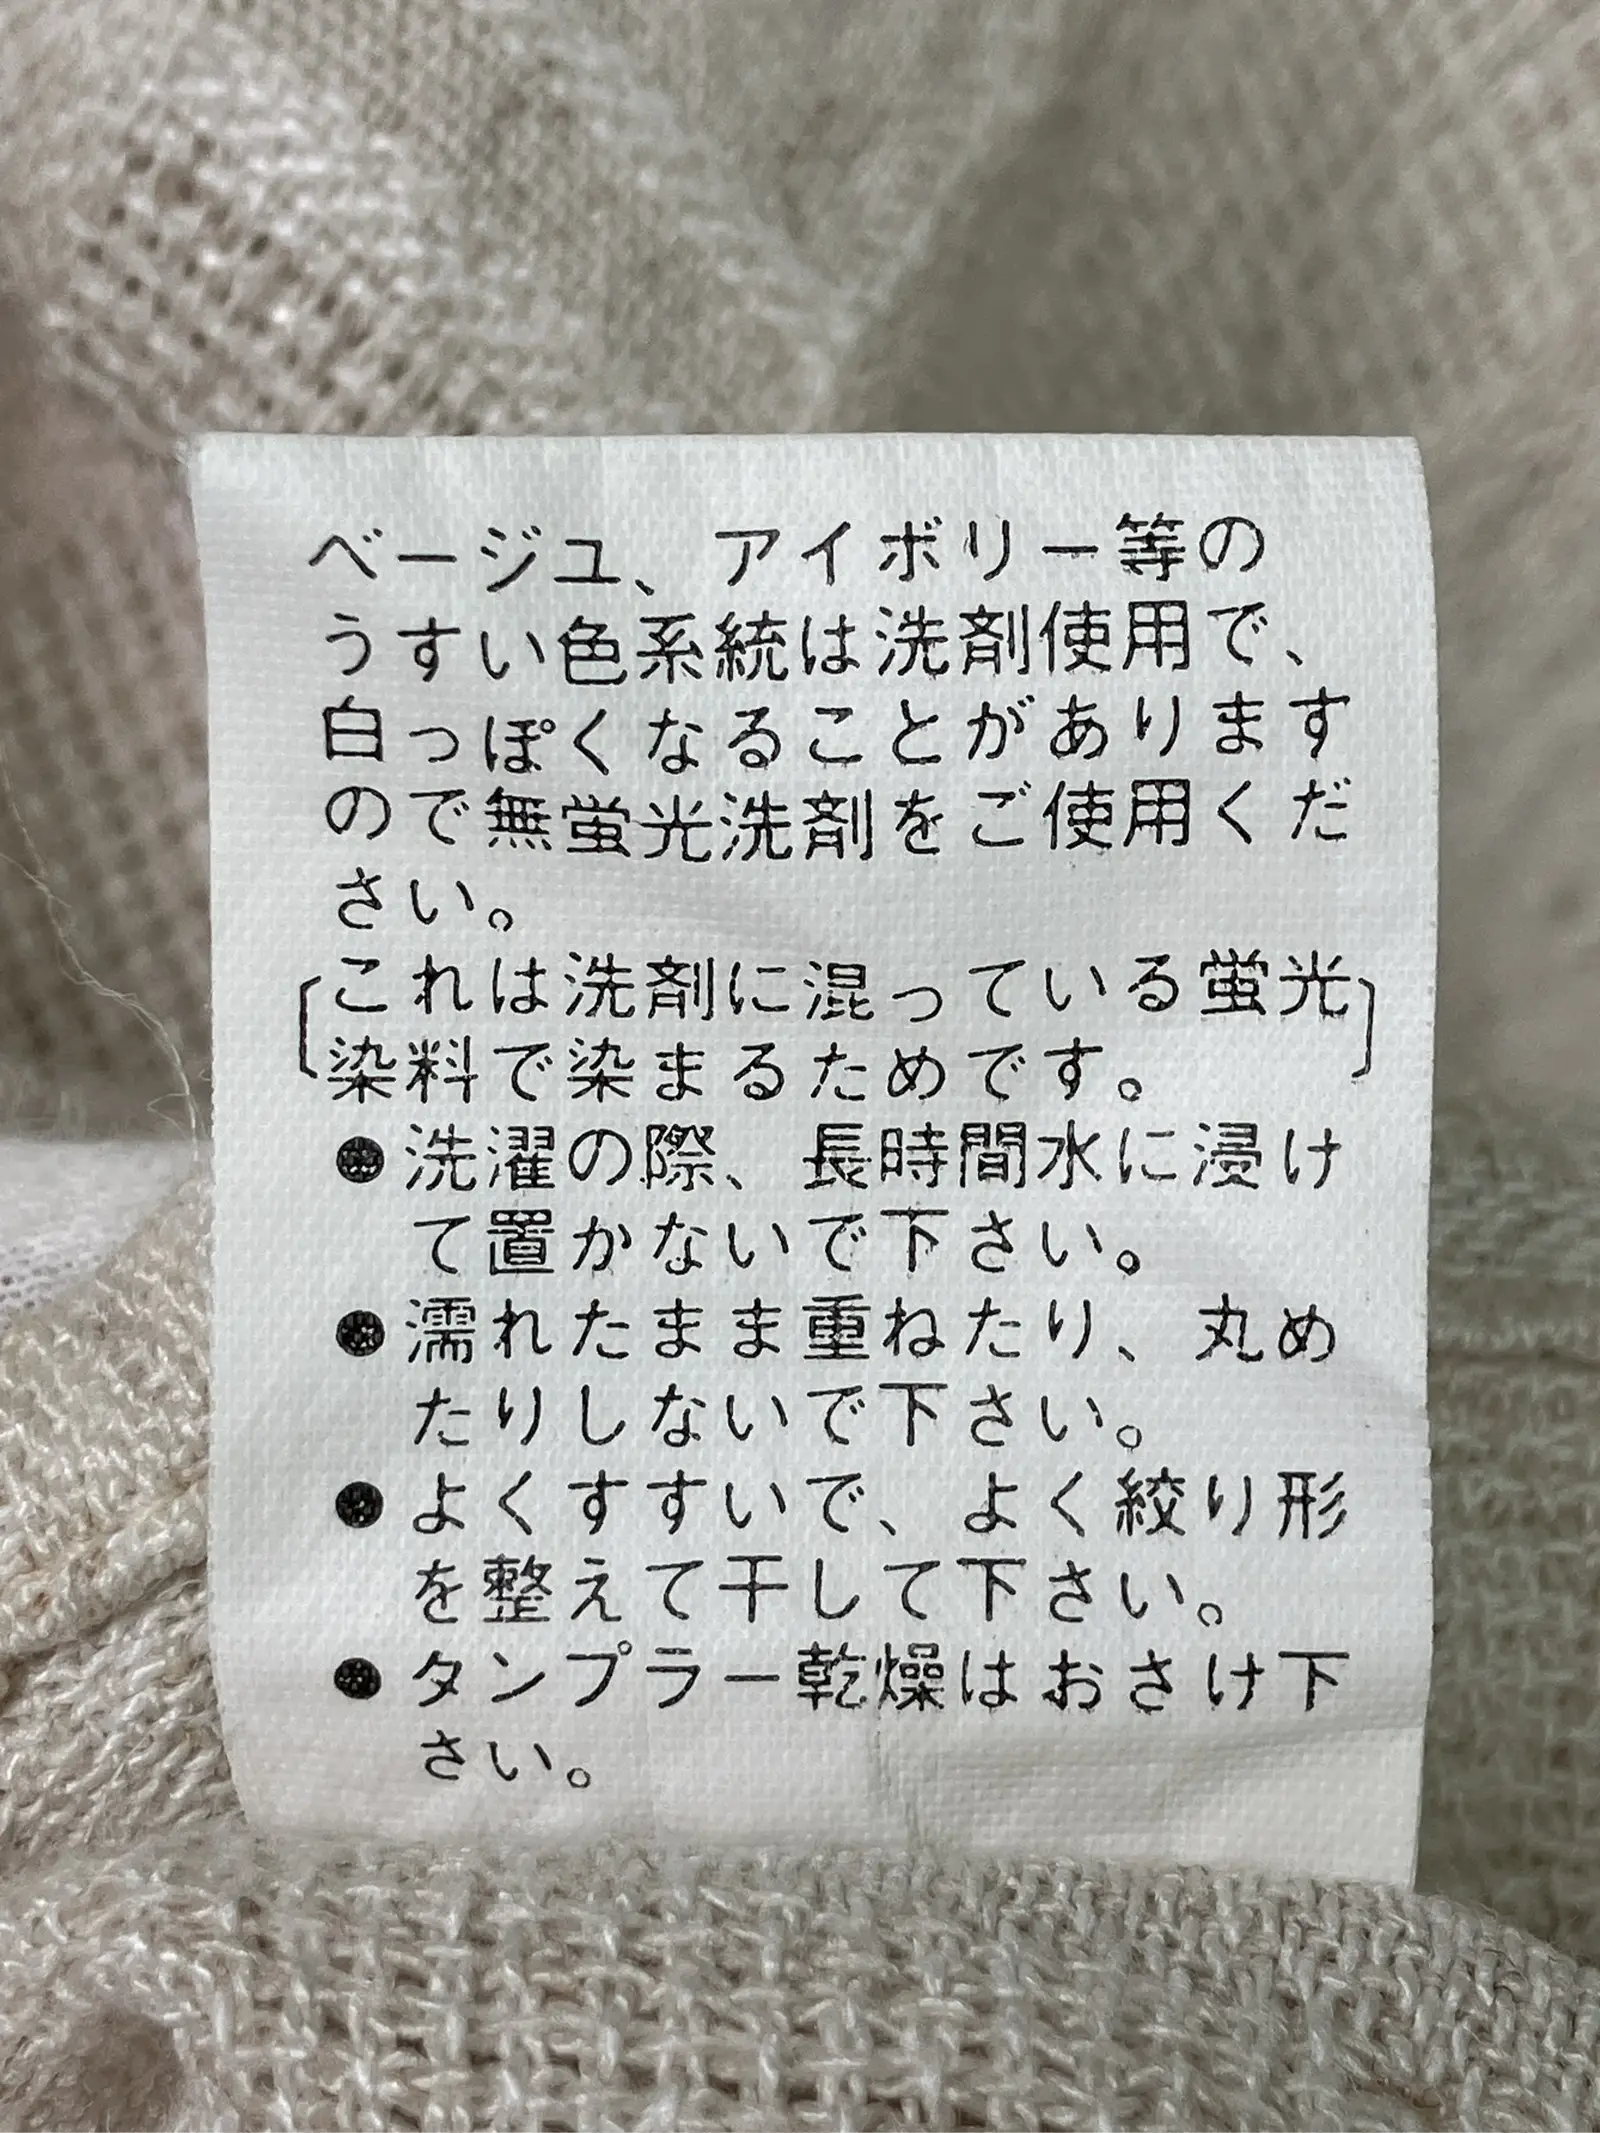 ベージユ、アイボリー等の
うすい色系統は洗剤使用で、
白っぽくなることがあります
ので無蛍光洗剤をご使用くだ
さい。
〔これは洗剤に混っている蛍光
染料で染まるためです。〕
●洗濯の際、長時間水に浸け
て置かないで下さい。
●濡れたまま重ねたり、丸め
たりしないで下さい。
●よくすすいで、よく絞り形
を整えて干して下さい。
●タンプラー乾燥はおさけ下
さい。